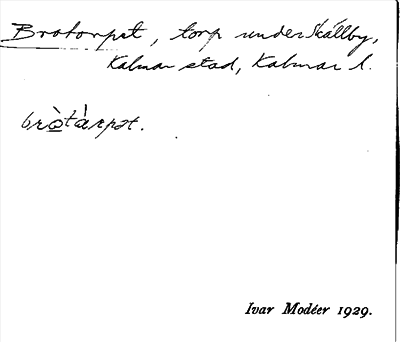 Brotorpet, torp under Skällby,
Kalmar stad, Kalmar l.
bròtàrpət.
Ivar Modéer 1929.